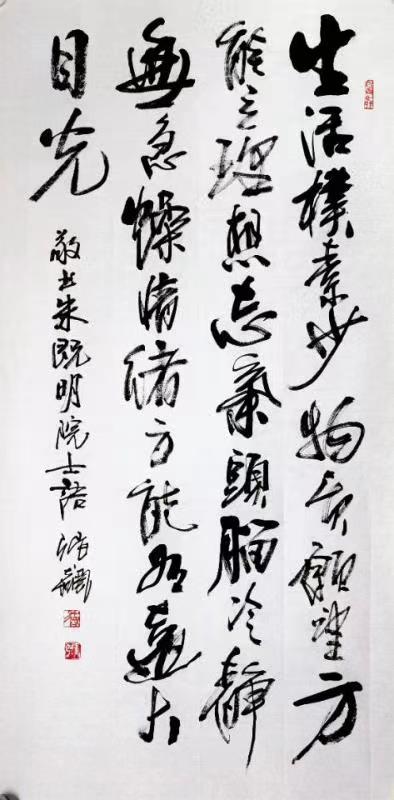 生活樸素少物質願望方
能立理想志氣頭腦冷靜
無急燥情緒方能有遠大
目光
敬书朱既明院士語